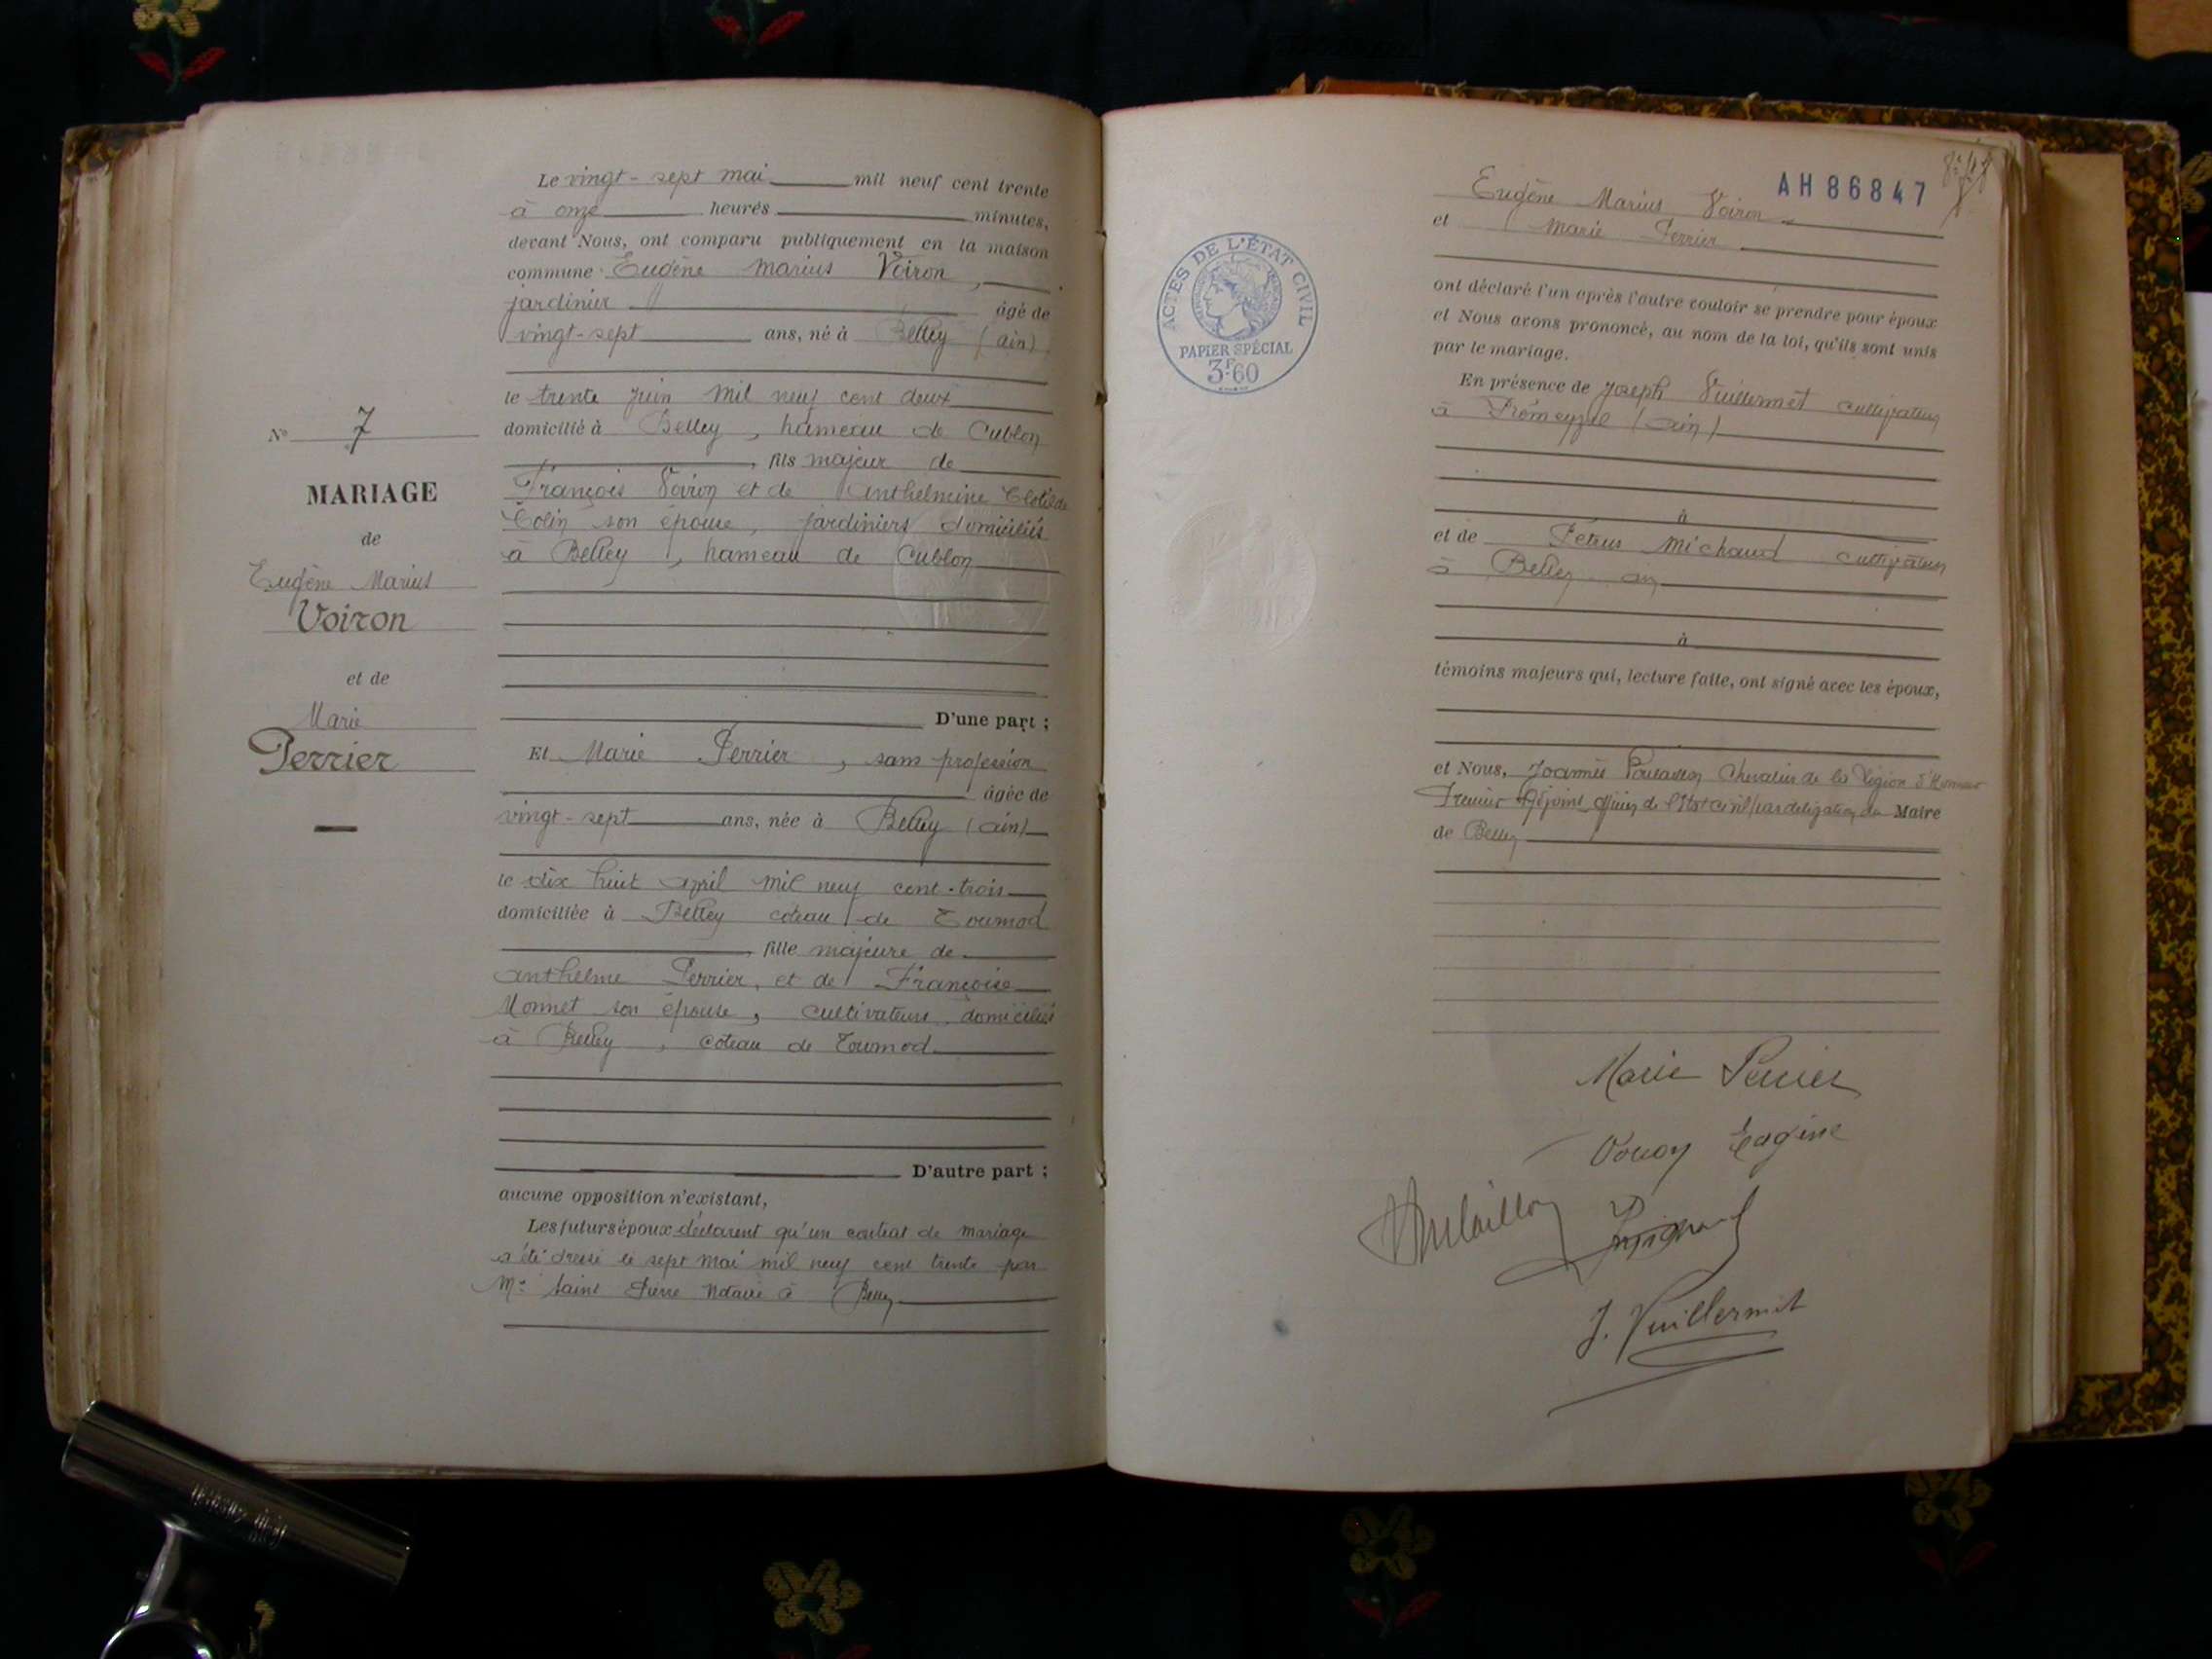 Le vingt-sept mai mil neuf cent trente
à onze heures minutes,
devant Nous, ont comparu publiquement en la maison
commune Eugène Marius Voiron,
jardinier âgé de
vingt-sept ans, né à Belley (ain)
le trente Juin mil neuf cent deux
domicilié à Belley, hameau de Cublon
, fils majeur de
François Voiron et de anthelmine Clotilde
Colin son épouse, jardiniers domiciliés
à Belley, hameau de Cublon
D'une part ;
Et Marie Perrier, sans profession
âgée de
vingt-sept ans, née à Belley (ain)
le dix huit avril mil neuf cent-trois
domiciliée à Belley coteau de
, fille majeure de
anthelme Perrier, et de Françoise
Monnet son épouse, cultivateurs domiciliés
à Belley, coteau de
D'autre part ;
aucune opposition n'existant,
Les futurs époux déclarent qu'un contrat de mariage
a été dressé le sept mai mil neuf cent trente par
Me Saint Pierre Notaire à Belley
No 7
MARIAGE
de
Eugène Marius
Voiron
et de
Marie
Perrier
AH 86847
Eugène Marius Voiron
et Marie Perrier
ACTES DE L'ÉTAT CIVIL
PAPIER SPÉCIAL
3F60
ont déclaré l'un après l'autre vouloir se prendre pour époux
et Nous avons prononcé, au nom de la loi, qu'ils sont unis
par le mariage.
En présence de Joseph Vuillermet cultivateur
à (ain)
à
et de Pétrus Michaud cultivateur
à Belley ain
à
témoins majeurs qui, lecture faite, ont signé avec les époux,
et Nous, Joannès Chevalier de la Légion d'Honneur
Premier Adjoint officier de l'Etat civil par délégation du Maire
de Belley
Marie Perrier
Voiron Eugène
J. Vuillermet